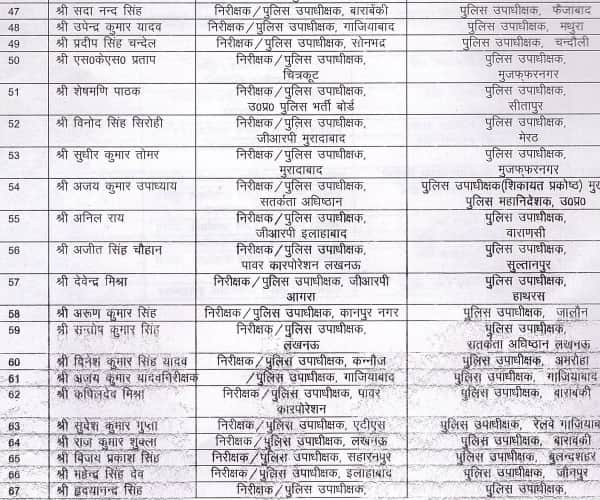 47 श्री सदा नन्द सिंह निरीक्षक/पुलिस उपाधीक्षक, बाराबंकी पुलिस उपाधीक्षक, फैजाबाद
48 श्री उपेन्द्र कुमार यादव निरीक्षक/पुलिस उपाधीक्षक, गाजियाबाद पुलिस उपाधीक्षक, मथुरा
49 श्री प्रदीप सिंह चन्देल निरीक्षक/पुलिस उपाधीक्षक, सोनभद्र पुलिस उपाधीक्षक, चन्दौली
50 श्री एस0के0एस0 प्रताप निरीक्षक/पुलिस उपाधीक्षक, पुलिस उपाधीक्षक,
चित्रकूट मुजफ्फरनगर
51 श्री शेषमणि पाठक निरीक्षक/पुलिस उपाधीक्षक, पुलिस उपाधीक्षक,
उ0प्र0 पुलिस भर्ती बोर्ड सीतापुर
52 श्री विनोद सिंह सिरोही निरीक्षक/पुलिस उपाधीक्षक, पुलिस उपाधीक्षक,
जीआरपी मुरादाबाद मेरठ
53 श्री सुधीर कुमार तोमर निरीक्षक/पुलिस उपाधीक्षक, पुलिस उपाधीक्षक,
मुरादाबाद मुजफ्फरनगर
54 श्री अजय कुमार उपाध्याय निरीक्षक/पुलिस उपाधीक्षक, पुलिस उपाधीक्षक(शिकायत प्रकोष्ठ)
सतर्कता अधिष्ठान पुलिस महानिदेशक, उ0प्र0
55 श्री अनिल राय निरीक्षक/पुलिस उपाधीक्षक, पुलिस उपाधीक्षक,
जीआरपी इलाहाबाद वाराणसी
56 श्री अजीत सिंह चौहान निरीक्षक/पुलिस उपाधीक्षक, पुलिस उपाधीक्षक,
पावर कारपोरेशन लखनऊ सुल्तानपुर
57 श्री देवेन्द्र मिश्रा निरीक्षक/पुलिस उपाधीक्षक, जीआरपी पुलिस उपाधीक्षक,
आगरा हाथरस
58 श्री अरूण कुमार सिंह निरीक्षक/पुलिस उपाधीक्षक, कानपुर नगर पुलिस उपाधीक्षक, जालौन
59 श्री सन्तोष कुमार सिंह निरीक्षक/पुलिस उपाधीक्षक, पुलिस उपाधीक्षक,
लखनऊ सतर्कता अधिष्ठान लखनऊ
60 श्री दिनेश कुमार सिंह यादव निरीक्षक/पुलिस उपाधीक्षक, कन्नौज पुलिस उपाधीक्षक, अमरोहा
61 श्री अजय कुमार यादवनिरीक्षक /पुलिस उपाधीक्षक, गाजियाबाद पुलिस उपाधीक्षक, गाजियाबाद
62 श्री कपिलदेव मिश्रा निरीक्षक/पुलिस उपाधीक्षक, पावर पुलिस उपाधीक्षक, बाराबंकी
कारपोरेशन
63 श्री सुधेश कुमार गुप्ता निरीक्षक/पुलिस उपाधीक्षक, एटीएस पुलिस उपाधीक्षक, रेलवे
64 श्री राज कुमार शुक्ला निरीक्षक/पुलिस उपाधीक्षक, लखनऊ पुलिस उपाधीक्षक, बाराबंकी
65 श्री विजय प्रकाश सिंह निरीक्षक/पुलिस उपाधीक्षक, सहारनपुर पुलिस उपाधीक्षक, बुलन्दशहर
66 श्री महेन्द्र सिंह देव निरीक्षक/पुलिस उपाधीक्षक, इलाहाबाद पुलिस उपाधीक्षक, जौनपुर
67 श्री हृदयानन्द सिंह निरीक्षक/पुलिस उपाधीक्षक, पुलिस उपाधीक्षक,